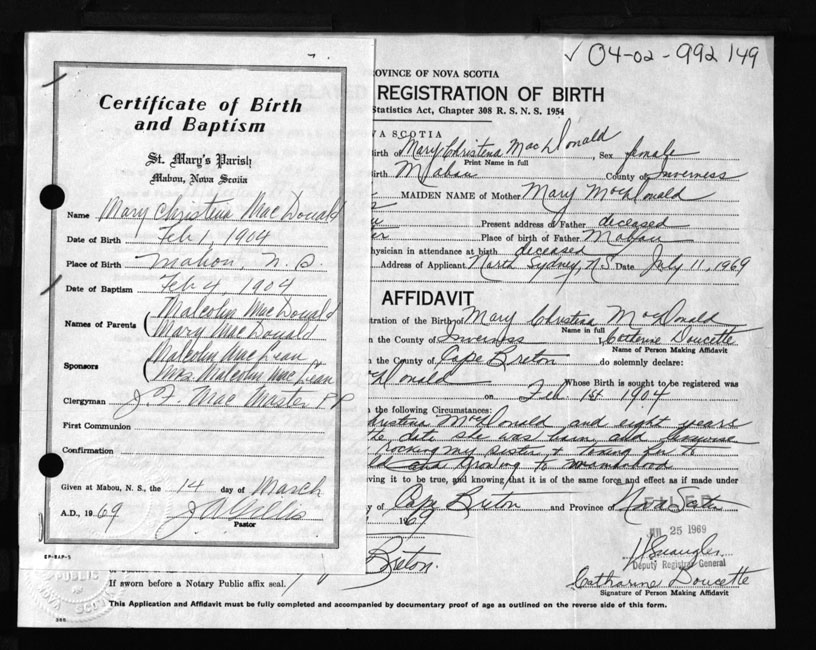 ✓ 04-02-992 149
Certificate of Birth
and Baptism
St. Mary's Parish
Mabou, Nova Scotia
Name Mary Christina MacDonald
Date of Birth Feb 1, 1904
Place of Birth Mabou, N.S.
Date of Baptism Feb 4, 1904
Names of Parents ( Malcolm MacDonald
Mary MacDonald
Sponsors ( Malcolm MacLean
Mrs. Malcolm MacLean
Clergyman J. F. MacMaster P P
First Communion
Confirmation
Given at Mabou, N. S., the 14 day of March
A.D., 1969
Pastor
EP-BAP-5
OVINCE OF NOVA SCOTIA
REGISTRATION OF BIRTH
Statistics Act, Chapter 308 R. S. N. S. 1954
VA SCOTIA
irth of Mary Christena MacDonald, Sex female
Print Name in full
Birth Mabou County of Inverness
MAIDEN NAME of Mother Mary MacDonald
Present address of Father deceased
Place of birth of Father Mabou
hysician in attendance at birth deceased
Address of Applicant North Sydney, N.S. Date July 11, 1969
AFFIDAVIT
tration of the Birth of Mary Christena MacDonald
Name in full
n the County of Inverness I, Catherine Doucette
Name of Person Making Affidavit
n the County of Cape Breton do solemnly declare:
cDonald Whose Birth is sought to be registered was
on Feb. 1st 1904
n the following Circumstances:
hristena McDonald and eight years
the date she was born, and likewise
rocking my sister &
and growing to womanhood
ving it to be true, and knowing that it is of the same force and effect as if made under
y of Cape Breton and Province of Nova Scotia
1969
FILED
JUL 25 1969
Deputy Registrar General
Breton.
If sworn before a Notary Public affix seal.
Catharine Doucette
Signature of Person Making Affidavit
This Application and Affidavit must be fully completed and accompanied by documentary proof of age as outlined on the reverse side of this form.
PUBLIC
OF
NOVA SCOTIA